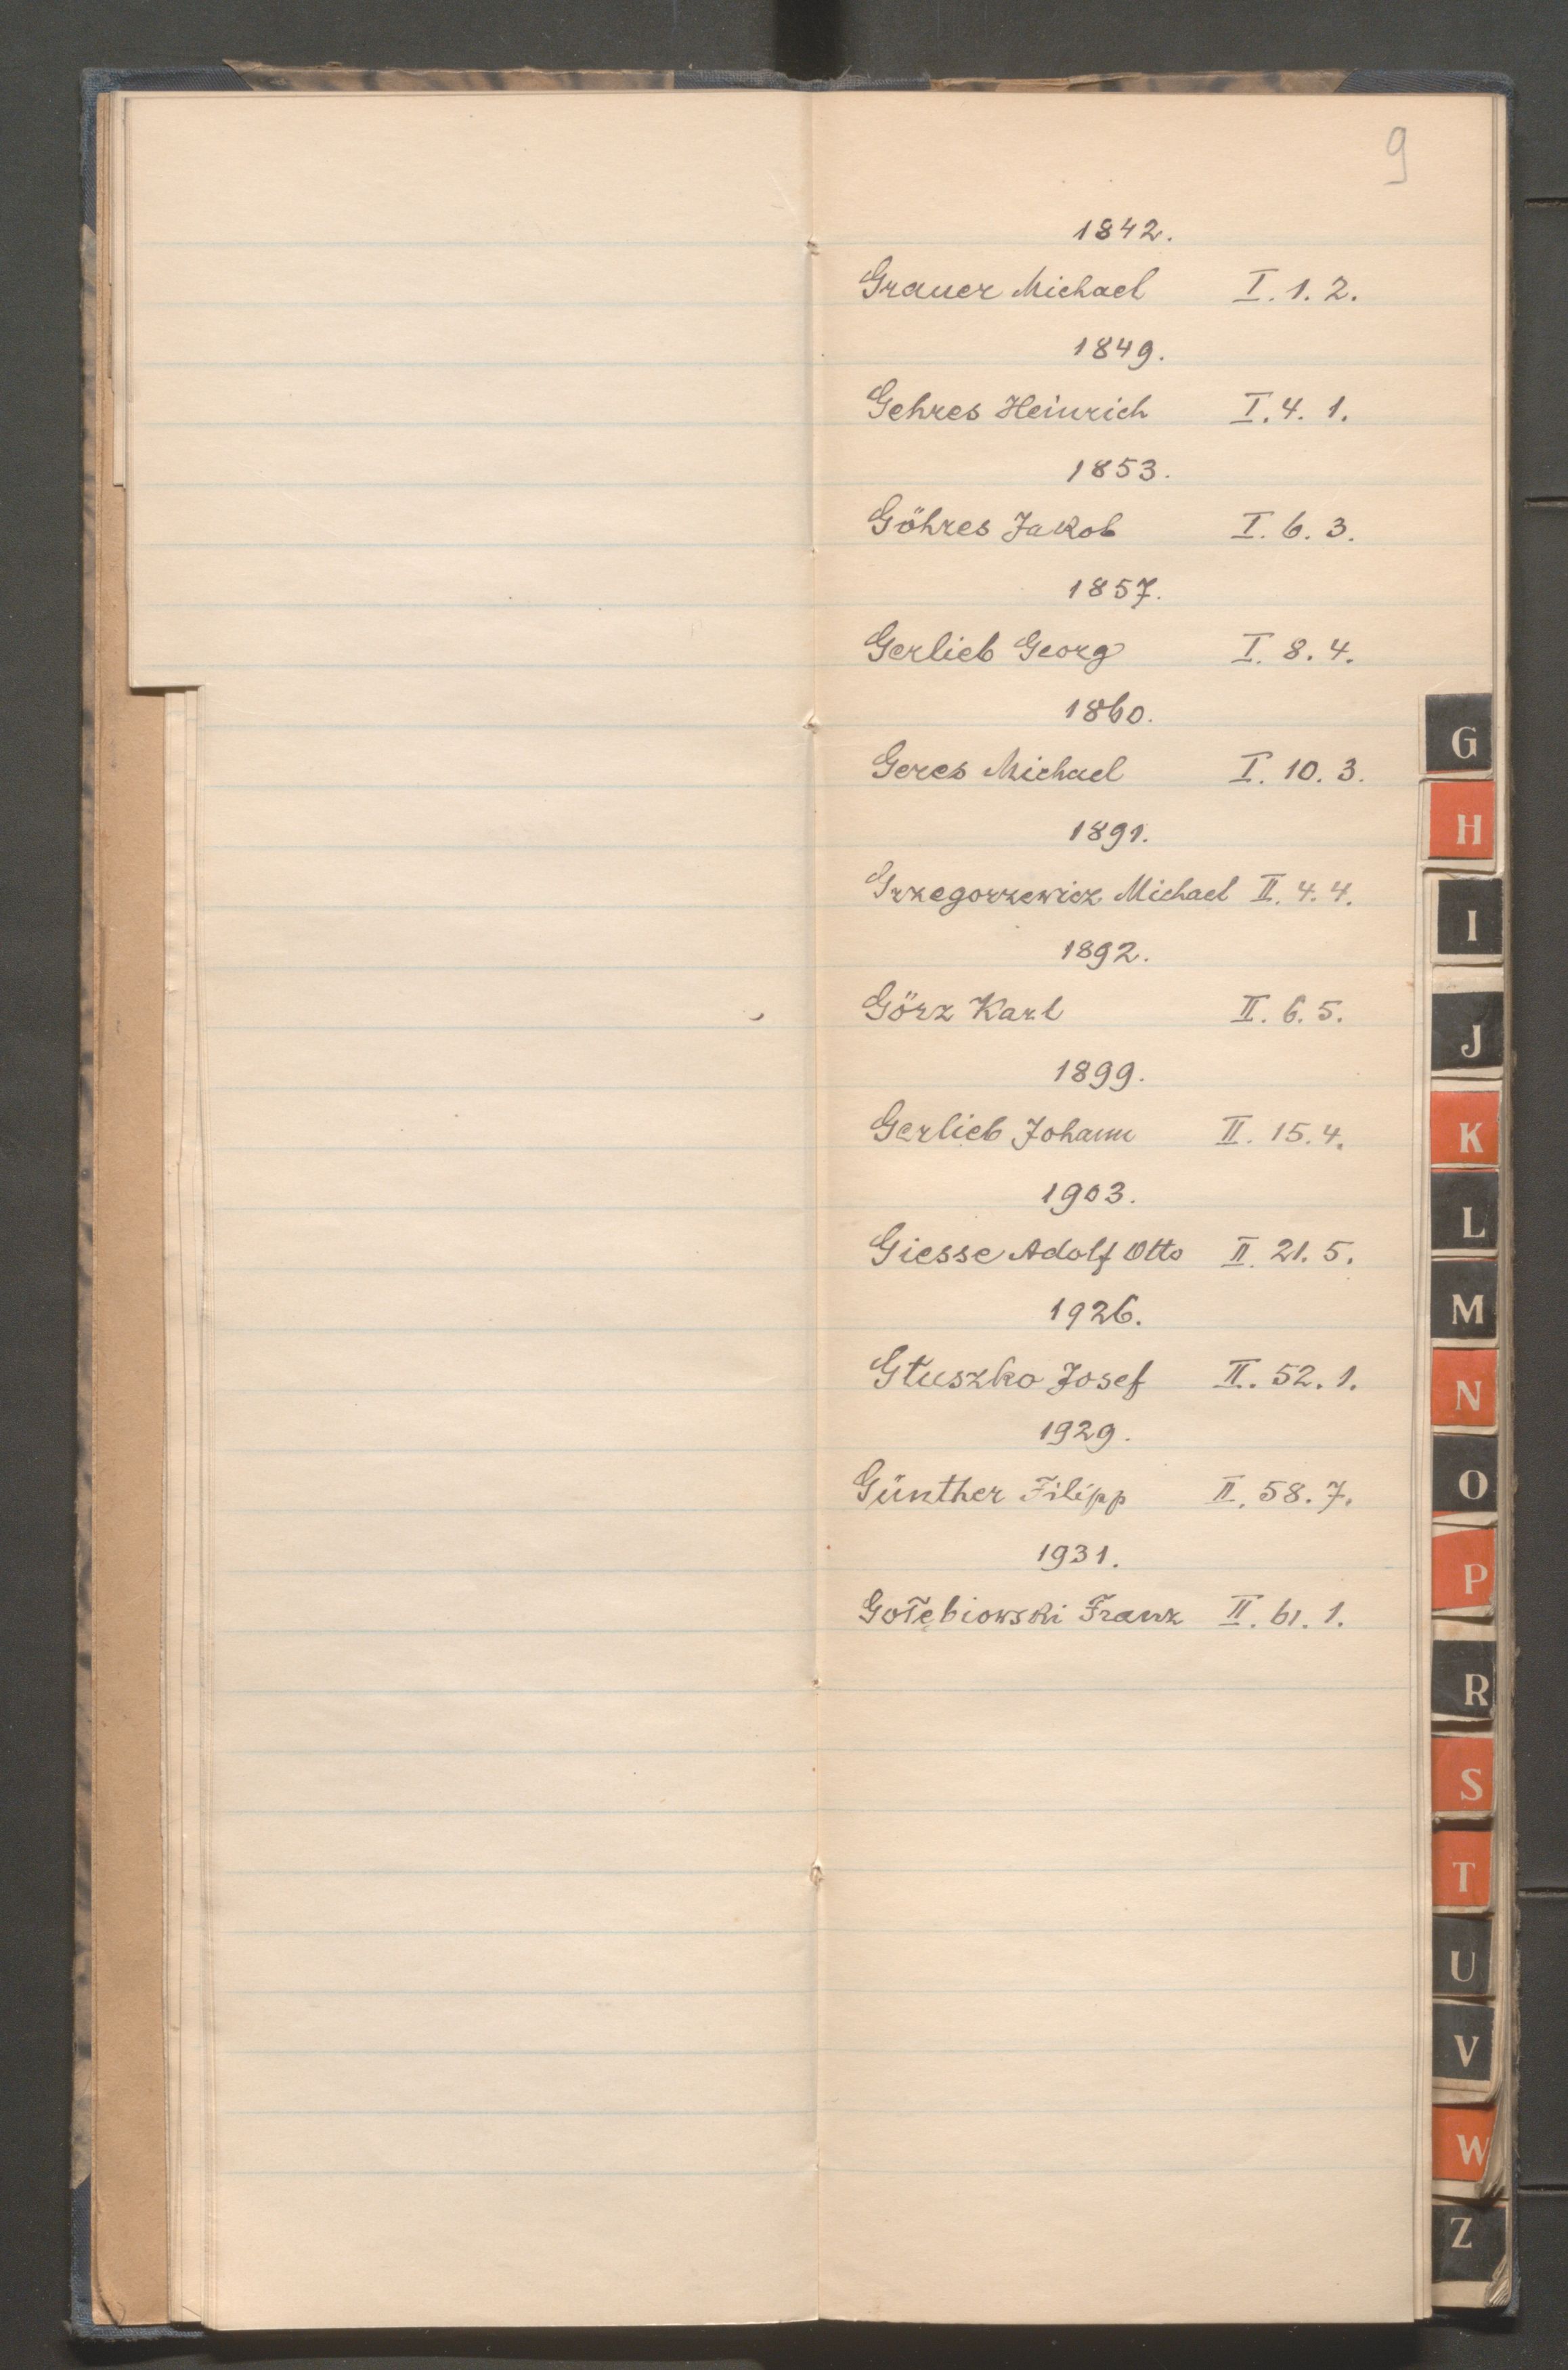 9
1842.
Grauer Michael I. 1. 2.
1849.
Gehres Heinrich I. 4. 1.
1853.
Göhres Jakob I. 6. 3.
1857.
Gerlieb Georg I. 8. 4.
1860.
Geres Michael I. 10. 3.
1891.
Grzegorzewicz Michael II. 4. 4.
1892.
Görz Karl II. 6. 5.
1899.
Gerlieb Johann II. 15. 4.
1903.
Giesse Adolf Otto II. 21. 5.
1926.
Głuszko Josef II. 52. 1.
1929.
Günther Filipp II. 58. 7.
1931.
Gołębiowski Franz II. 61. 1.
G
H
I
J
K
L
M
N
O
P
R
S
T
U
V
W
Z